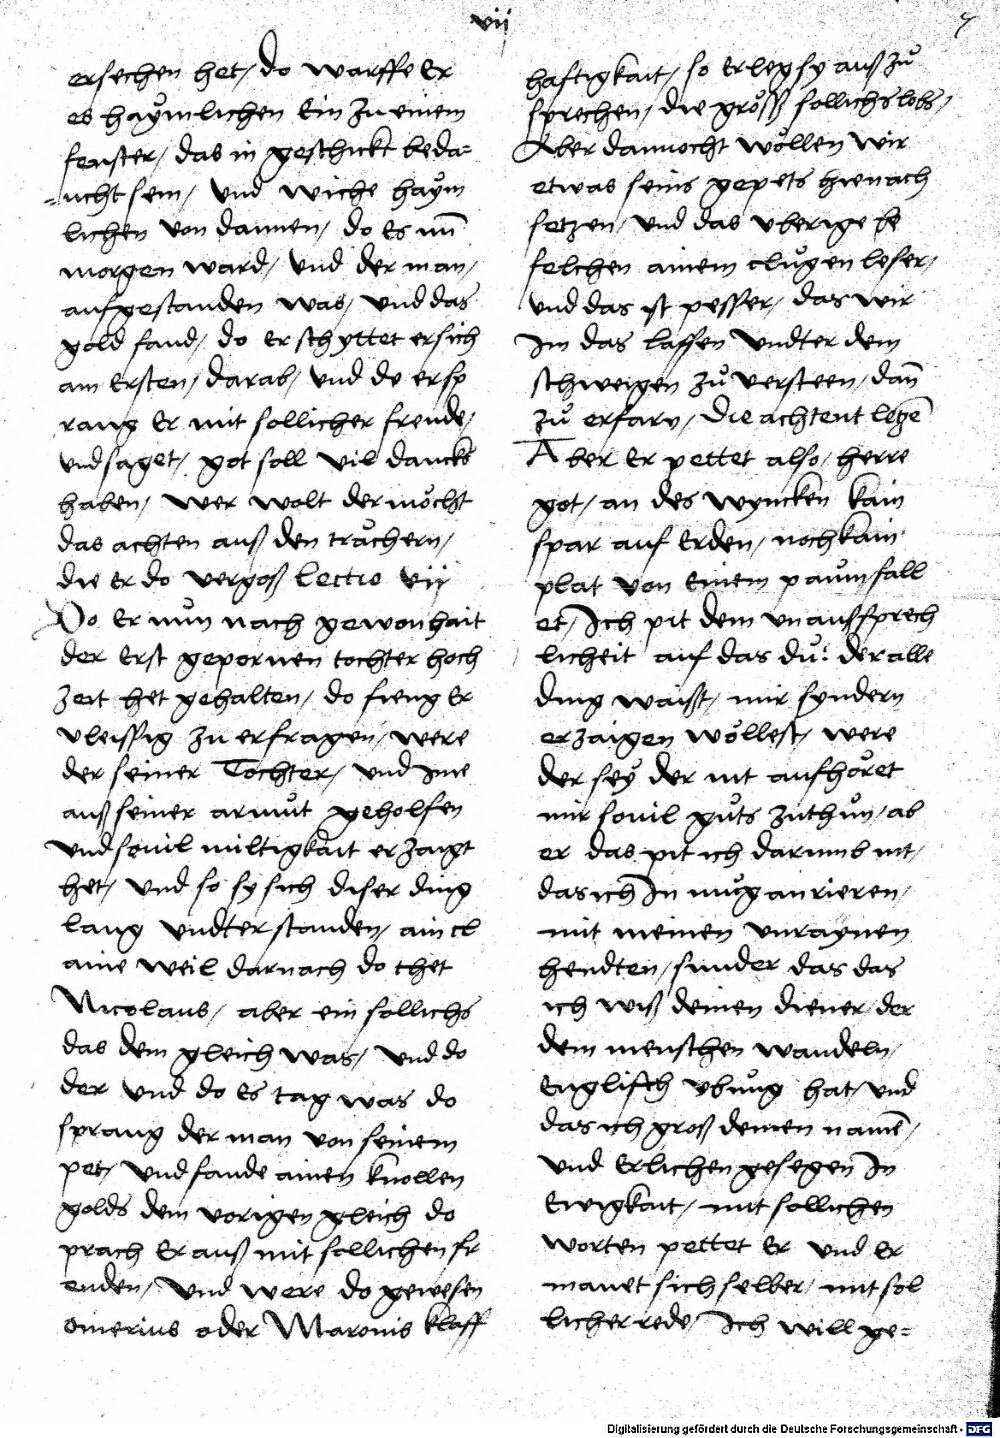 vii
7
ersechen het / do warffe Er
es haymlichen Ein zu einem
fenster / das in geschickt beda=
=ucht sein / Vnd wiche haym
lichen von dannen / do Es nun
morgen ward / Vnd der man /
aufgestanden was / Vnd das
gold fand / do Erschyttet ersich
am Ersten / darab / Vnd do ersp
rang Er mit sollicher freude /
Vnd saget / got soll vil dancks
haben / wer wolt der möcht
das achten auß den trächern /
die Er do vergoß Lectio vij
Do Er nůn nach gewonhait
der Erst gepornen tochter hoch
zeit het gehalten / do fieng Er
vleissig zu erfragen / were
der seiner Tochter / Vnd Ime
auß seiner armůt geholfen
Vnd souil miltigkait erzaigt
het / Vnd so sy sich diser ding
lang vndterstanden / ain cl
aine weil darnach do thet
Nicolaus / aber ein sollichs
das dem gleich was / Vnd do
der Vnd do Es tag was do
sprang der man von seinem
pet / Vnd fande ainen knollen
golds dem vorigen gleich do
prach Er auß mit sollichen fr
euden / Vnd were do gewesen
omerius oder Maronis klaff
haftigkait / so Erleg sy auß zů
sprechen / die größ sollichs lobs /
Aber dannocht wöllen wir
etwas seins gepets hienach
setzen / Vnd das vberige be
felchen ainem clůgen leser /
Vnd das ist pesser / das wir
Im das lassen vndter dem
schweigen zů versteen / dañ
zů erfarn / die achtent legē
Aber Er pettet also / herre
got / an des wyncken kain
spar auf Erden / noch kain
plat von Einem paům fall
et / Ich pit dem vnaussprech
licheit auf das dů / der alle
ding waist / mir syndern
erzaigen wöllest / were
der seÿ der nit aufhöret
mir souil gůts zuthůn / ab
er das pit ich darumb nit /
das ich In můg anrieren /
mit meinen vnraynen
hendten / sunder das das
ich wiß deinen diener / der
dem menschen wandeln /
Englisch vbůng hat / Vnd
das ich groß deinen namē /
Vnd Erlichen gesegen In
Ewigkait / mit sollichen
worten pettet Er Vnd Er
manet sich selber / mit sol
licher rede / Ich will ge=
Digitalisierung gefördert durch die Deutsche Forschungsgemeinschaft - DFG